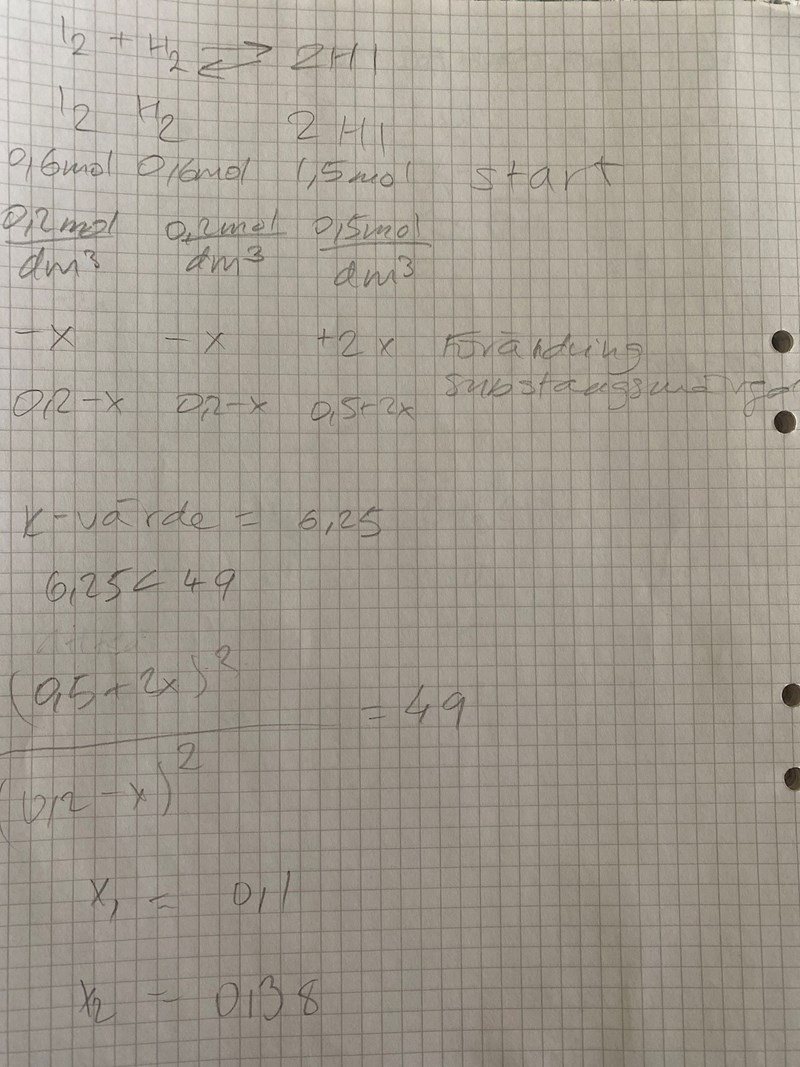 I2 + H2 ⇌ 2HI
I2 H2 2HI
0,6mol 0,6mol 1,5mol start
0,2mol/dm³ 0,2mol/dm³ 0,5mol/dm³
-x -x +2x Förändring
0,2-x 0,2-x 0,5+2x substansmängd
K-värde = 6,25
6,25 < 49
(0,5+2x)²
= 49
(0,2-x)²
x₁ = 0,1
x₂ = 0,38